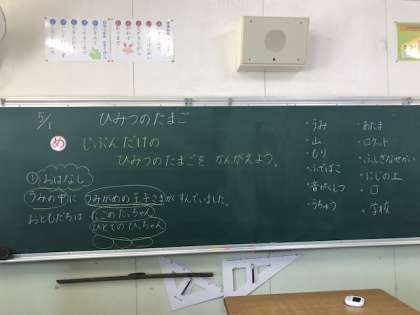 5/1
ひみつのたまご
め じぶんだけの
ひみつのたまごを かんがえよう。
①おはなし
うみの中に うみがめの王子さまがすんでいました。
おともだちは たこのたっちゃん
ひとでのひっちゃん
・うみ
・山
・もり
・ふでばこ
・音がくしつ
・うちゅう
・あたま
・ロケット
・ふしぎなせかい
・にじの上
・口
・学校